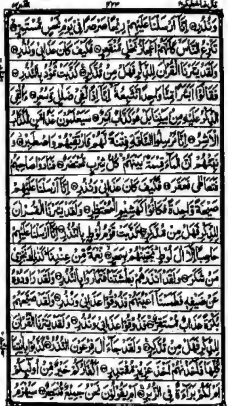 وَنُذُرِ ۝ اِنَّاۤ اَرْسَلْنَا عَلَيْهِمْ رِيْحًا صَرْصَرًا فِيْ يَوْمِ نَحْسٍ مُّسْتَمِرٍّ ۝
تَنْزِعُ النَّاسَ كَاَنَّهُمْ اَعْجَازُ نَخْلٍ مُّنْقَعِرٍ ۝ فَكَيْفَ كَانَ عَذَابِيْ وَنُذُرِ ۝
وَلَقَدْ يَسَّرْنَا الْقُرْاٰنَ لِلذِّكْرِ فَهَلْ مِنْ مُّدَّكِرٍ ۝ كَذَّبَتْ ثَمُوْدُ بِالنُّذُرِ ۝
فَقَالُوْۤا اَبَشَرًا مِّنَّا وَاحِدًا نَّتَّبِعُهٗۤ اِنَّاۤ اِذًا لَّفِيْ ضَلٰلٍ وَّسُعُرٍ ۝ ءَاُلْقِيَ
الذِّكْرُ عَلَيْهِ مِنْ بَيْنِنَا بَلْ هُوَ كَذَّابٌ اَشِرٌ ۝ سَيَعْلَمُوْنَ غَدًا مَّنِ الْكَذَّابُ
الْاَشِرُ ۝ اِنَّا مُرْسِلُوا النَّاقَةِ فِتْنَةً لَّهُمْ فَارْتَقِبْهُمْ وَاصْطَبِرْ ۝ وَ
نَبِّئْهُمْ اَنَّ الْمَآءَ قِسْمَةٌ بَيْنَهُمْ كُلُّ شِرْبٍ مُّحْتَضَرٌ ۝ فَنَادَوْا صَاحِبَهُمْ
فَتَعَاطٰى فَعَقَرَ ۝ فَكَيْفَ كَانَ عَذَابِيْ وَنُذُرِ ۝ اِنَّاۤ اَرْسَلْنَا عَلَيْهِمْ
صَيْحَةً وَّاحِدَةً فَكَانُوْا كَهَشِيْمِ الْمُحْتَظِرِ ۝ وَلَقَدْ يَسَّرْنَا الْقُرْاٰنَ
لِلذِّكْرِ فَهَلْ مِنْ مُّدَّكِرٍ ۝ كَذَّبَتْ قَوْمُ لُوْطٍۭ بِالنُّذُرِ ۝ اِنَّاۤ اَرْسَلْنَا عَلَيْهِمْ
حَاصِبًا اِلَّاۤ اٰلَ لُوْطٍ نَجَّيْنٰهُمْ بِسَحَرٍ ۝ نِّعْمَةً مِّنْ عِنْدِنَا كَذٰلِكَ نَجْزِيْ
مَنْ شَكَرَ ۝ وَلَقَدْ اَنْذَرَهُمْ بَطْشَتَنَا فَتَمَارَوْا بِالنُّذُرِ ۝ وَلَقَدْ رَاوَدُوْهُ
عَنْ ضَيْفِهٖ فَطَمَسْنَاۤ اَعْيُنَهُمْ فَذُوْقُوْا عَذَابِيْ وَنُذُرِ ۝ وَلَقَدْ صَبَّحَهُمْ
بُكْرَةً عَذَابٌ مُّسْتَقِرٌّ ۝ فَذُوْقُوْا عَذَابِيْ وَنُذُرِ ۝ وَلَقَدْ يَسَّرْنَا الْقُرْاٰنَ
لِلذِّكْرِ فَهَلْ مِنْ مُّدَّكِرٍ ۝ وَلَقَدْ جَآءَ اٰلَ فِرْعَوْنَ النُّذُرُ ۝ كَذَّبُوْا بِاٰيٰتِنَا
كُلِّهَا فَاَخَذْنٰهُمْ اَخْذَ عَزِيْزٍ مُّقْتَدِرٍ ۝ اَكُفَّارُكُمْ خَيْرٌ مِّنْ اُولٰٓئِكُمْ
اَمْ لَكُمْ بَرَآءَةٌ فِي الزُّبُرِ ۝ اَمْ يَقُوْلُوْنَ نَحْنُ جَمِيْعٌ مُّنْتَصِرٌ ۝ سَيُهْزَمُ